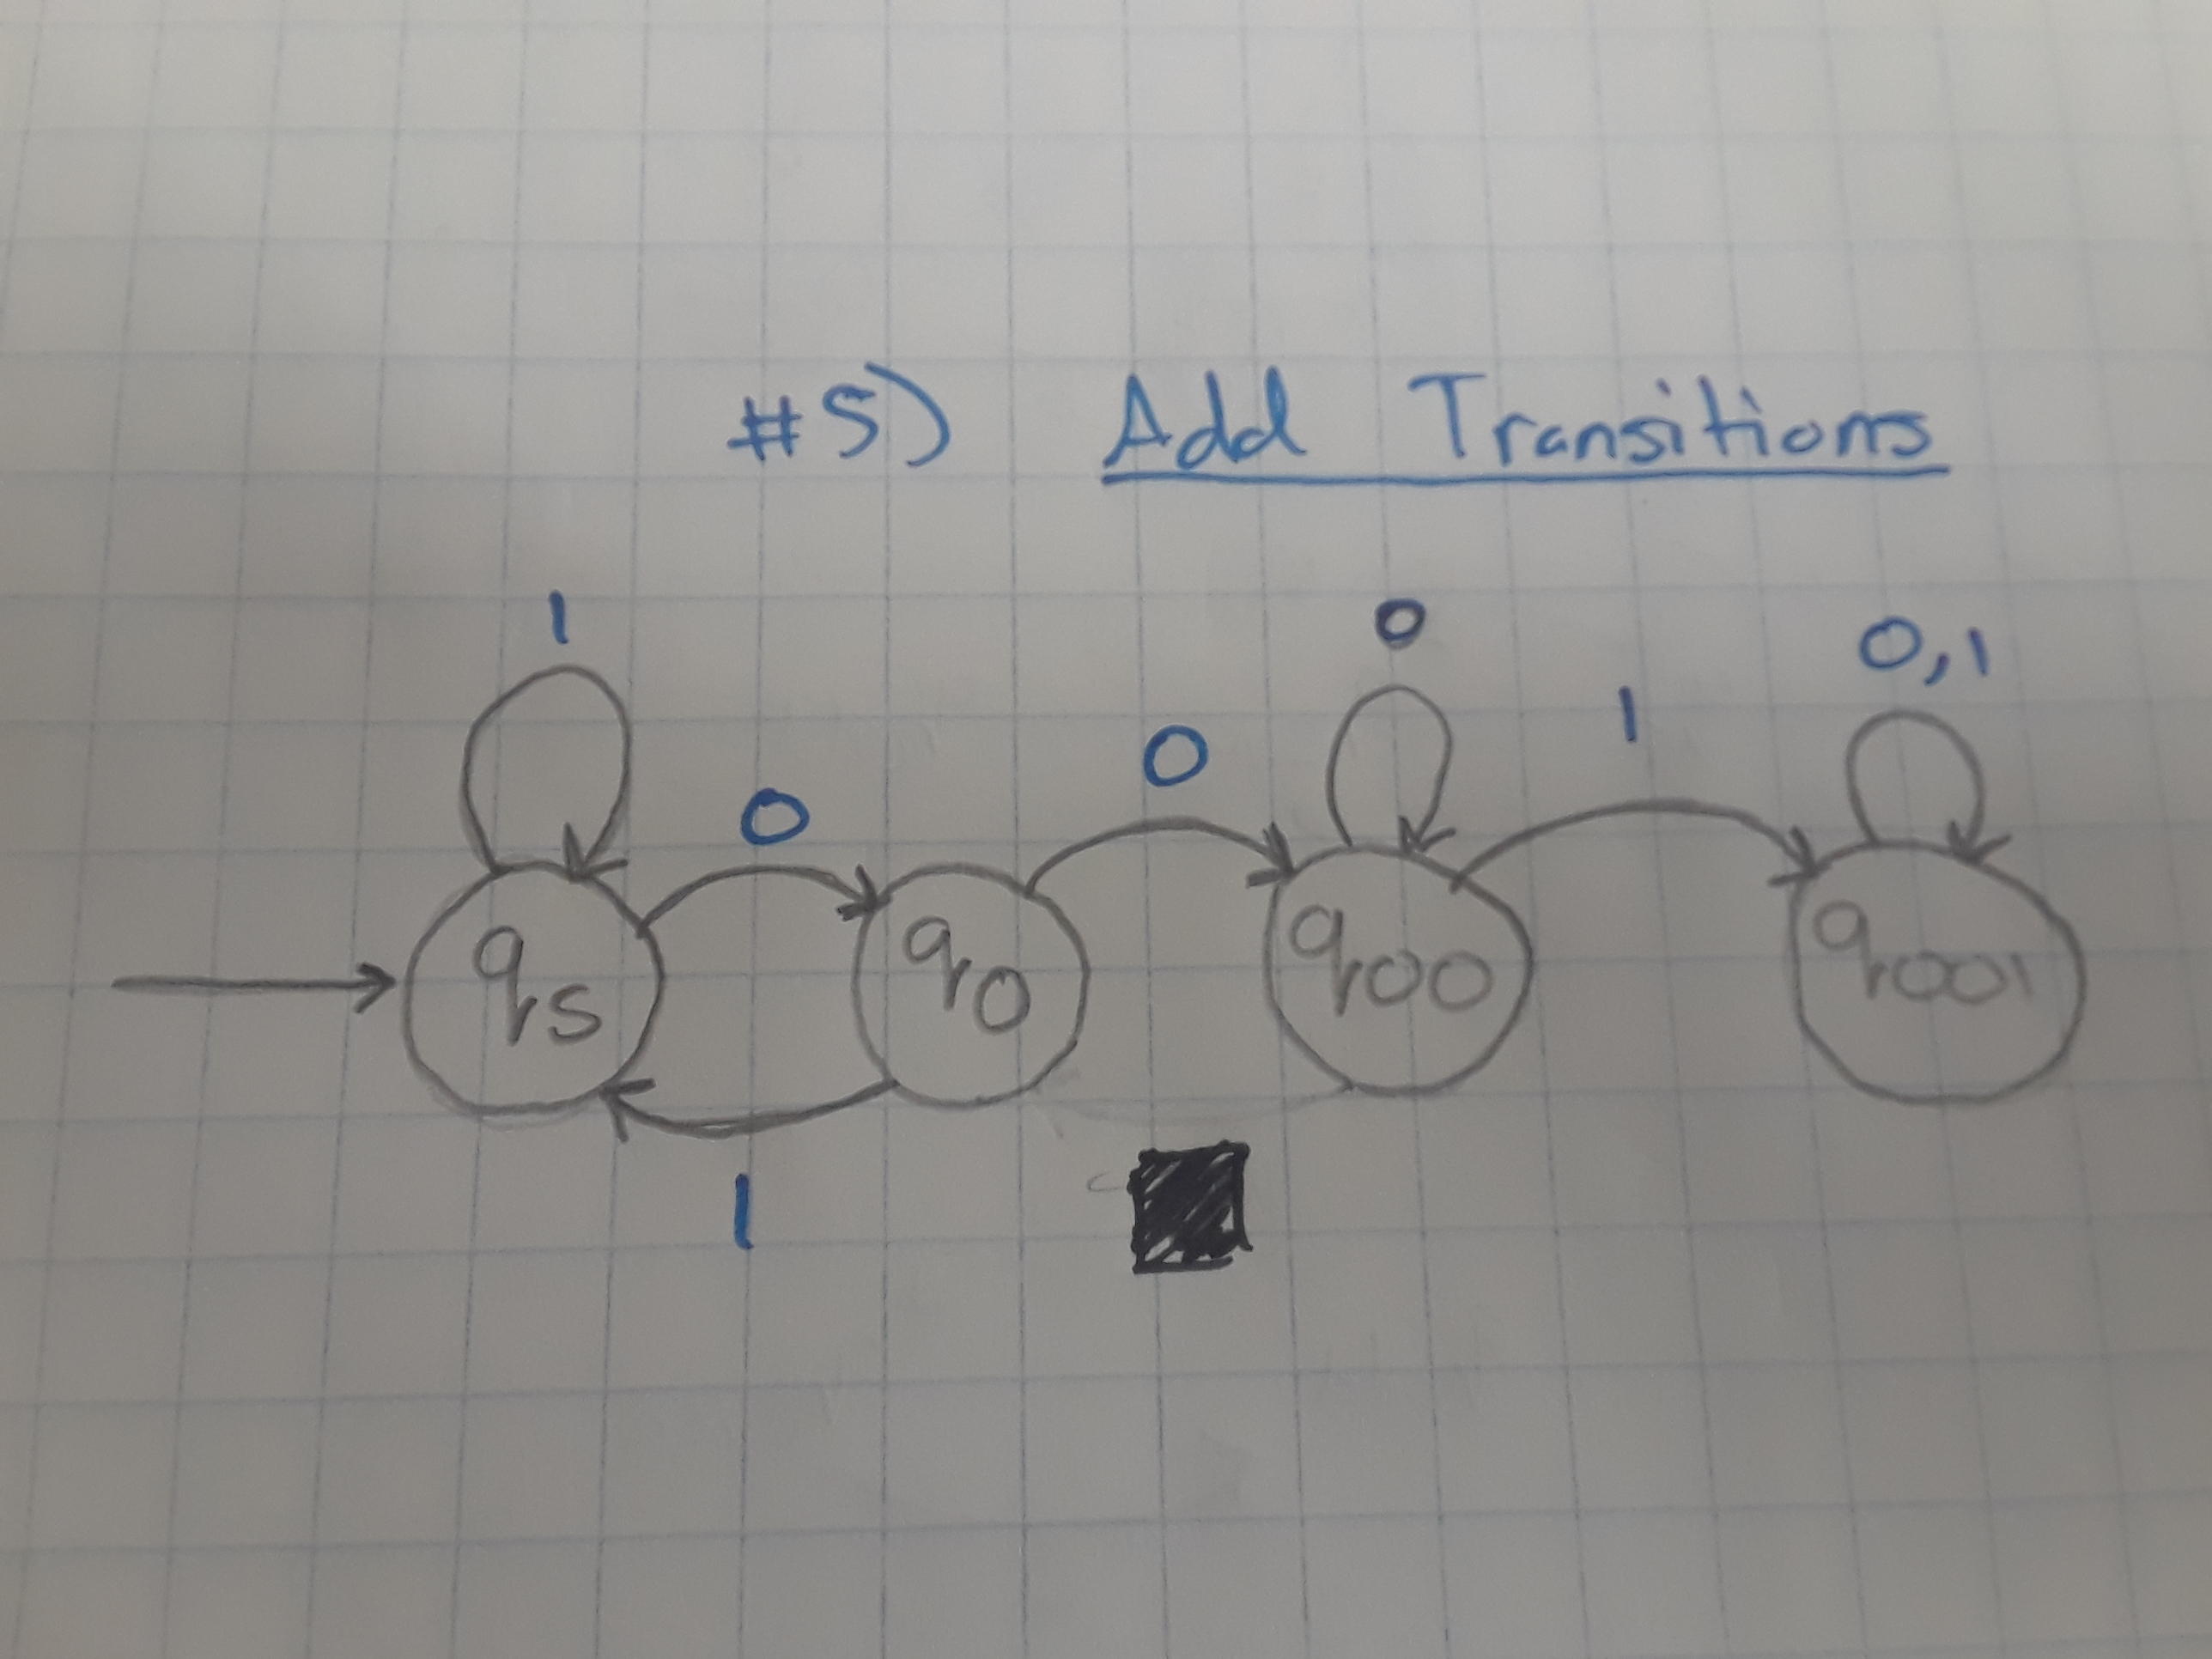 #5) Add Transitions
1
0
0,1
1
0
0
qs
q0
q00
q001
1